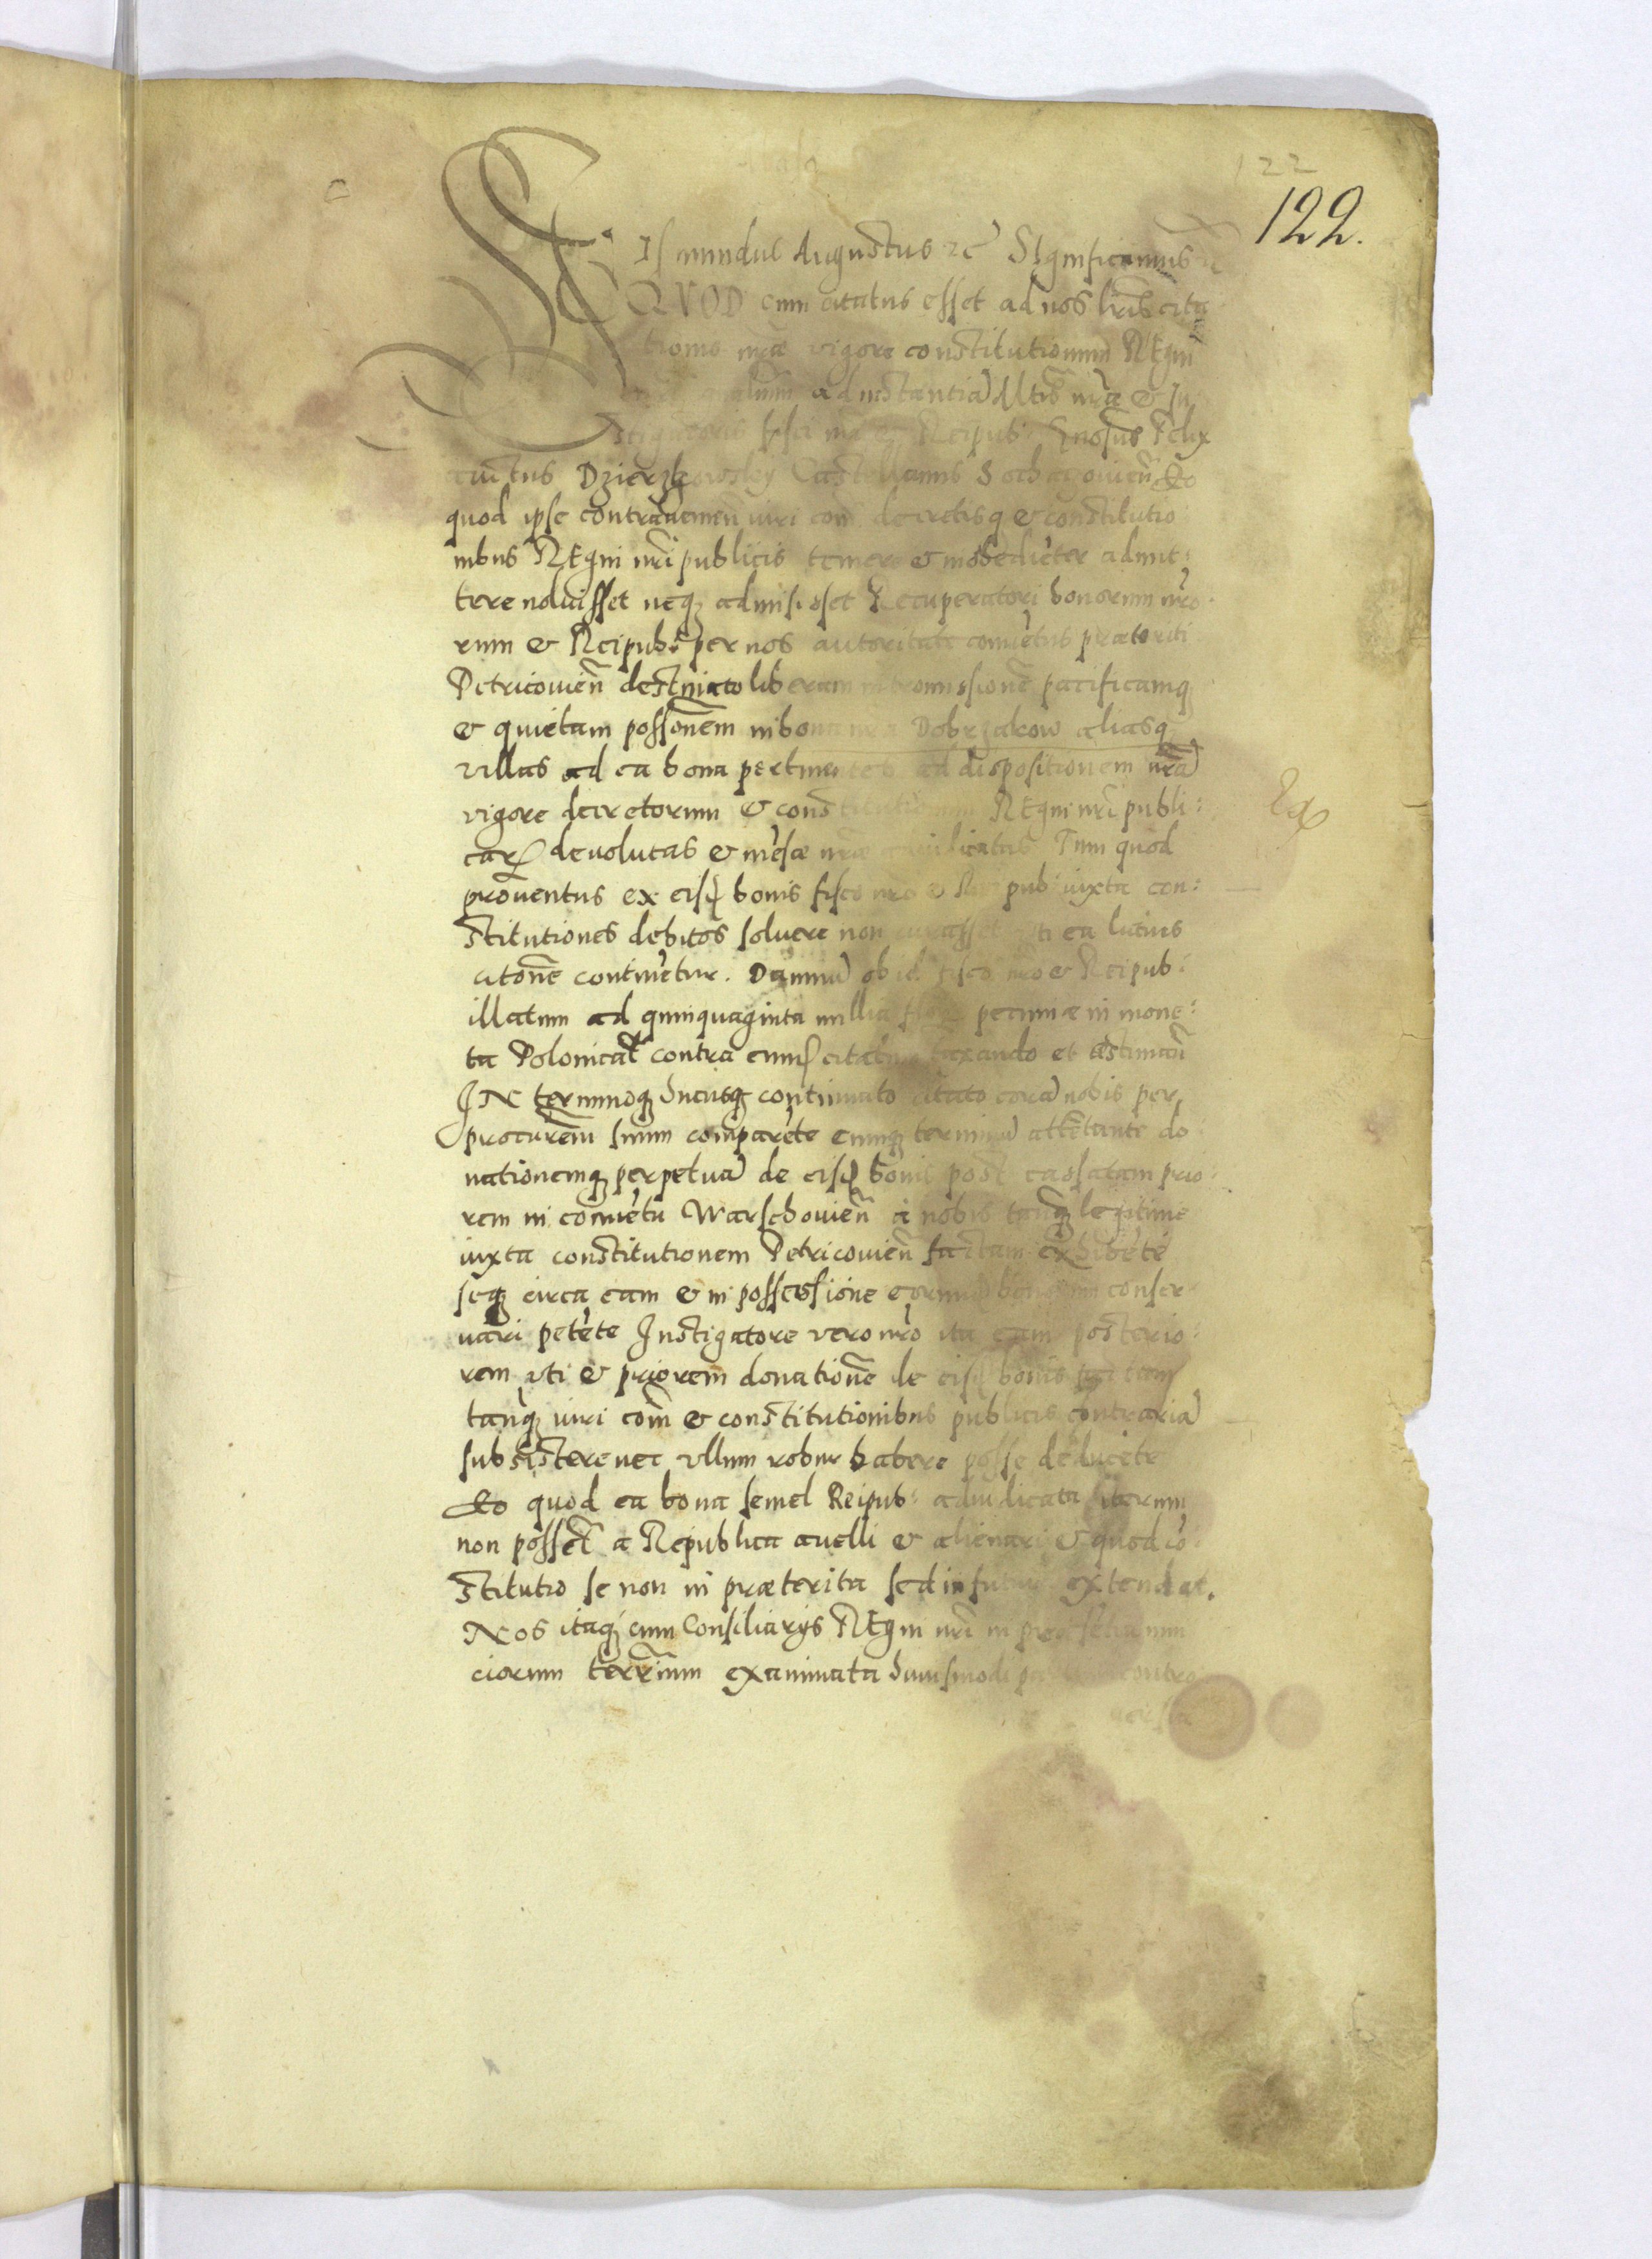 122
122.
SIsmundus Augustus zc Significamus
QVOD cum citatus esset ad nos lrīs cita
tionis nrāe vigore constitutionum REgni
ad instantiā nrāe & In
stigatoris fisci nrī & Reipub: Gnosus Felix
Dzierzgowsky Castellanus Sochaczouien̄ Eo
quod ipse contraueniēn iuri com̄ decretisq & constitutio
nibus REgni nrī publicis temere & inobediēter admit:
tere noluisset neq admisisset Recuperatori bonorum nrō
rum & Reipub: per nos autoritate conuētus praeteriti
Petricouien̄ destinato liberam intromissionē pacificamq
& quietam possonem in bona nrā Dobrzakow aliasq
villas ad ea bona pertinentes ad dispositionem nrā
vigore decretorum & constitutionum REgni nrī publi:
car deuolutas & mēsae nrāe adiudicatas Tum quod
prouentus ex eisd bonis fisco nrō & Reipub: iuxta con:
stitutiones debitos soluere non curasset ea latius
citōne continētur. Damnū ob id fisco nrō & Reipub:
illatum ad quinquaginta millia pecuniae in mone:
ta Polonicāl contra eund citatum taxando et estiman̄
IN terminoq hucusq continuato citato corā nobis per
procurēm suum comparēte eumq terminū attētante do
nationemq perpetuā de eisd bonis post cassatam prio
rem in conuētu Warschouien̄ a nobis tanq legitime
iuxta constitutionem Petricouien̄ factam exhibēte
seq circa eam & in possessione eorund bonorum conser
uari petēte Instigatore vero nrō ita eam posterio:
rem vti & priorem donationē de eisd bonis
tanq iuri com̄ & constitutionibus publicis contrariā
subsistere nec vllum robur habere posse deducēte
Eo quod ea bona semel Reipub: adiudicata iterum
non possēt a Republica auelli & alienari & quod cō
stitutio se non in praeterita sed in futura extendat.
Nos itaq cum Consiliarijs REgni nrī in praesētia nun
ciorum terrārum examinata huiusmodi partium contro
uersia